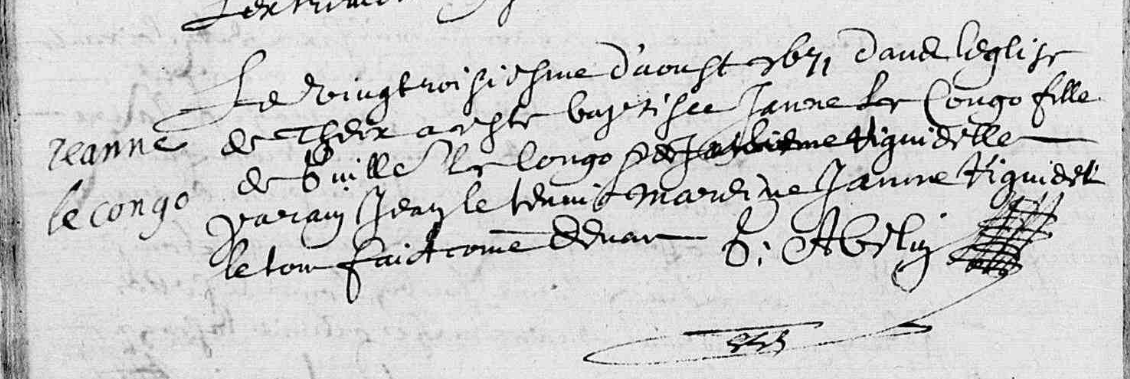 Le vingtroisiesme d'aoust 1671 dans leglise
de Theix a este baptisee Janne Le Congo fille
de Guille Le Congo et de tiguidelle
parain Jean le maraine Janne tiguidel
le tout faict comme devant G. Abelin
Jeanne
le congo